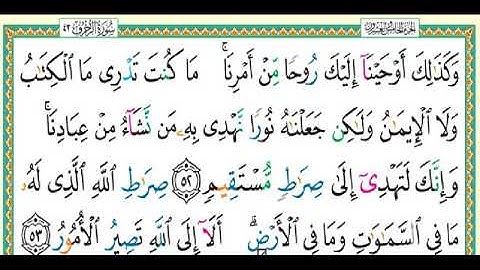 سُورَةُ الزُّخْرُفِ ٤٣
وَكَذَٰلِكَ أَوْحَيْنَآ إِلَيْكَ رُوحًا مِّنْ أَمْرِنَا ۚ مَا كُنتَ تَدْرِى مَا ٱلْكِتَٰبُ
وَلَا ٱلْإِيمَٰنُ وَلَٰكِن جَعَلْنَٰهُ نُورًا نَّهْدِى بِهِۦ مَن نَّشَآءُ مِنْ عِبَادِنَا ۚ
وَإِنَّكَ لَتَهْدِىٓ إِلَىٰ صِرَٰطٍ مُّسْتَقِيمٍ ٥٢ صِرَٰطِ ٱللَّهِ ٱلَّذِى لَهُۥ
مَا فِى ٱلسَّمَٰوَٰتِ وَمَا فِى ٱلْأَرْضِ ۗ أَلَآ إِلَى ٱللَّهِ تَصِيرُ ٱلْأُمُورُ ٥٣